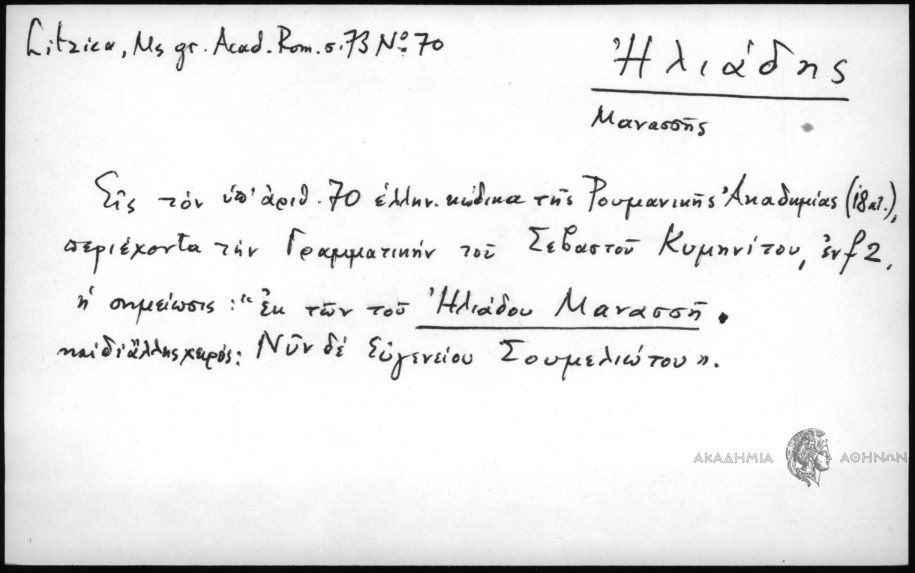 Litzica, Ms gr. Acad. Rom. σ. 73 Nº 70
Ἠλιάδης
Μανασσῆς
Εἰς τὸν ὑπ' ἀριθ. 70 ἑλλην. κώδικα τῆς Ρουμανικῆς Ἀκαδημίας (18 αἰ.),
περιέχοντα τὴν Γραμματικὴν τοῦ Σεβαστοῦ Κυμηνίτου, ἐν f 2,
ἡ σημείωσις: "ἐκ τῶν τοῦ Ἠλιάδου Μανασσῆ.
καὶ δι' ἄλλης χειρός: Νῦν δὲ Εὐγενείου Σουμελιώτου".
ΑΚΑΔΗΜΙΑ ΑΘΗΝΩΝ